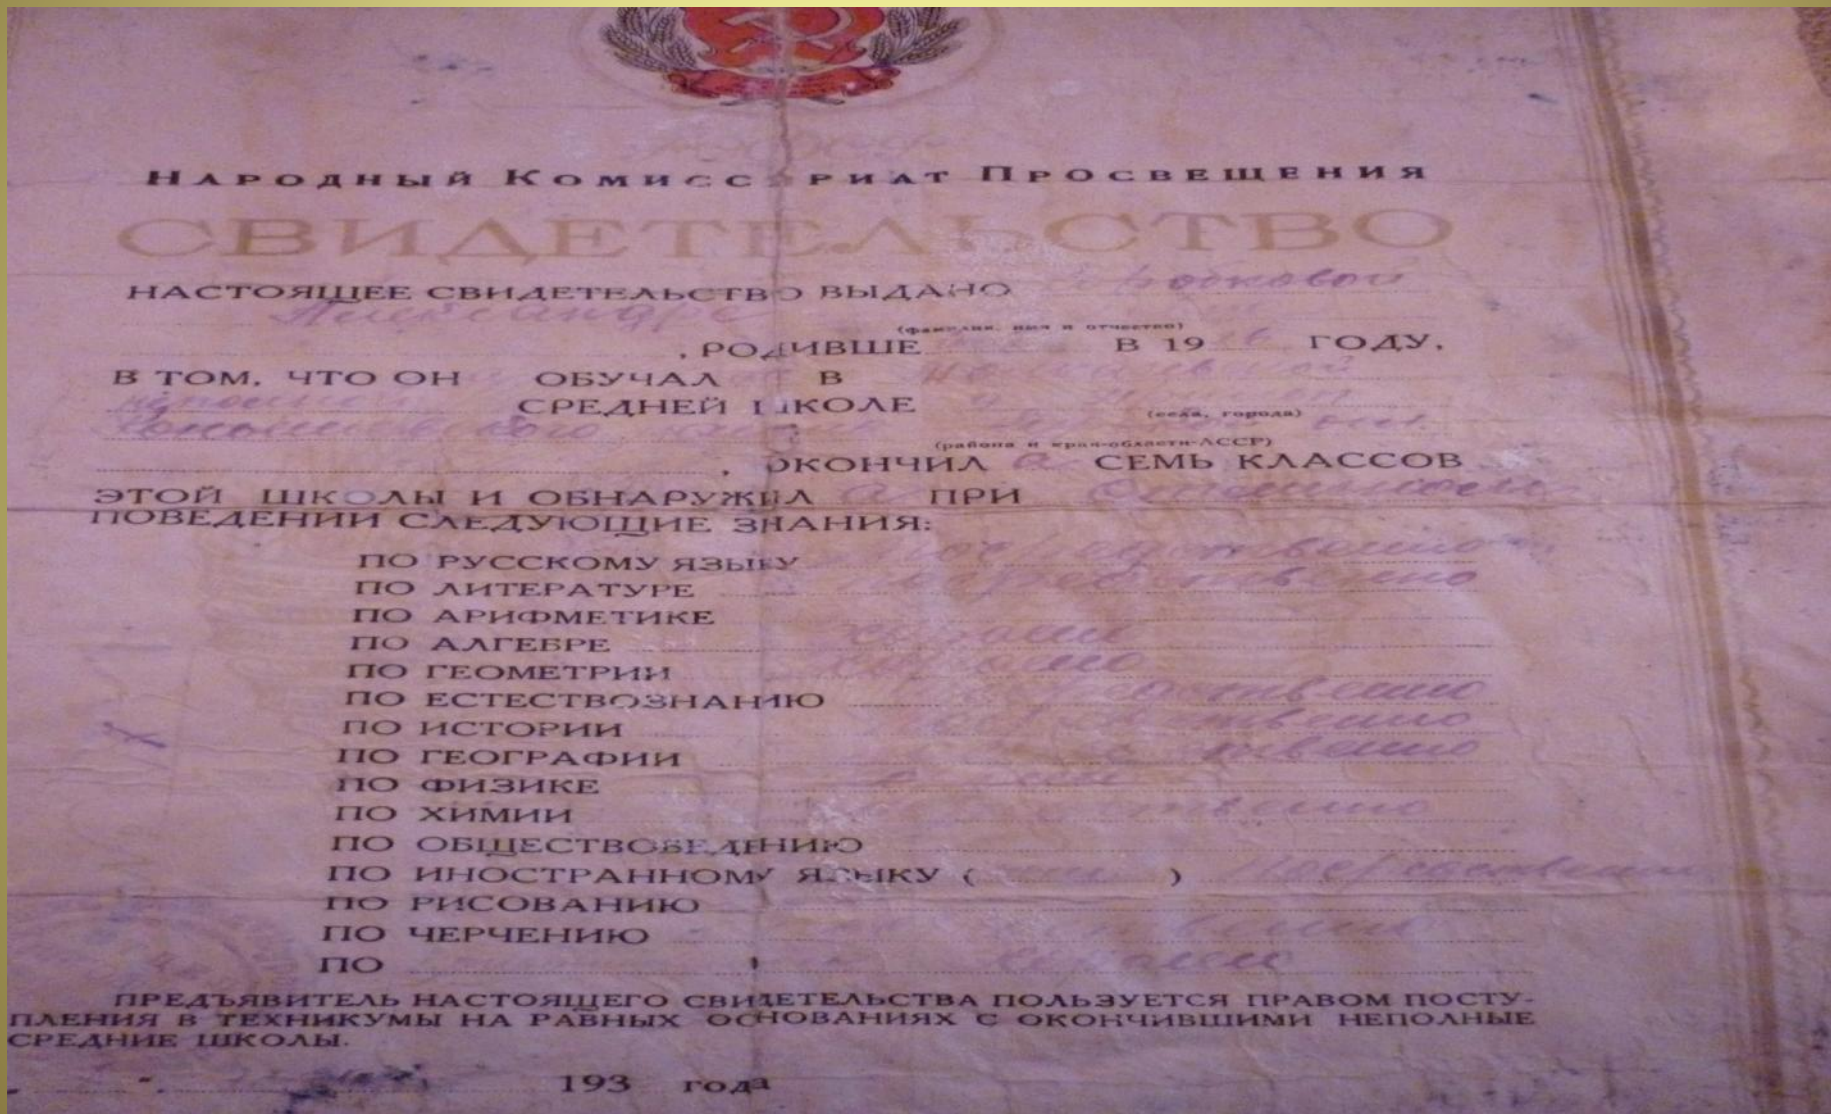 Народный Комиссариат Просвещения
СВИДЕТЕЛЬСТВО
НАСТОЯЩЕЕ СВИДЕТЕЛЬСТВО ВЫДАНО
Александре
(фамилия, имя и отчество)
, РОДИВШЕ В 19 ГОДУ,
В ТОМ, ЧТО ОН ОБУЧАЛ В
СРЕДНЕЙ ШКОЛЕ
(села, города)
(района и края-области-АССР)
, ОКОНЧИЛ а СЕМЬ КЛАССОВ
ЭТОЙ ШКОЛЫ И ОБНАРУЖИЛ а ПРИ отличном
ПОВЕДЕНИИ СЛЕДУЮЩИЕ ЗНАНИЯ:
ПО РУССКОМУ ЯЗЫКУ посредственно
ПО ЛИТЕРАТУРЕ посредственно
ПО АРИФМЕТИКЕ
ПО АЛГЕБРЕ хорошо
ПО ГЕОМЕТРИИ хорошо
ПО ЕСТЕСТВОЗНАНИЮ посредственно
ПО ИСТОРИИ посредственно
ПО ГЕОГРАФИИ посредственно
ПО ФИЗИКЕ
ПО ХИМИИ посредственно
ПО ОБЩЕСТВОВЕДЕНИЮ
ПО ИНОСТРАННОМУ ЯЗЫКУ ( ) посредственно
ПО РИСОВАНИЮ
ПО ЧЕРЧЕНИЮ
ПО хорошо
ПРЕДЪЯВИТЕЛЬ НАСТОЯЩЕГО СВИДЕТЕЛЬСТВА ПОЛЬЗУЕТСЯ ПРАВОМ ПОСТУ-
ПЛЕНИЯ В ТЕХНИКУМЫ НА РАВНЫХ ОСНОВАНИЯХ С ОКОНЧИВШИМИ НЕПОЛНЫЕ
СРЕДНИЕ ШКОЛЫ.
193 года